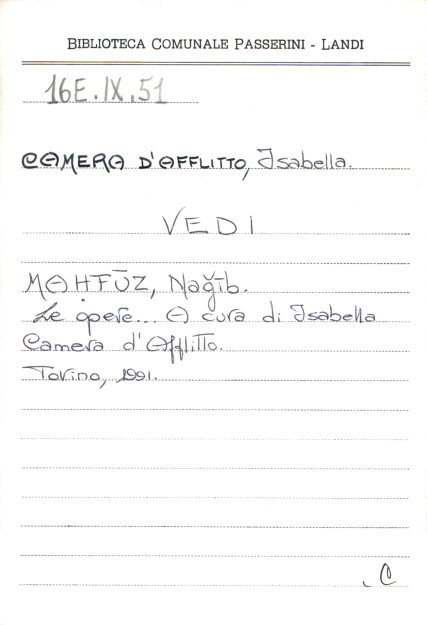 BIBLIOTECA COMUNALE PASSERINI - LANDI
16E.IX.51
CAMERA D'AFFLITTO, Isabella.
VEDI
MAHFŪZ, Nağīb.
Le opere... A cura di Isabella
Camera d'Afflitto.
Torino, 1991.
C